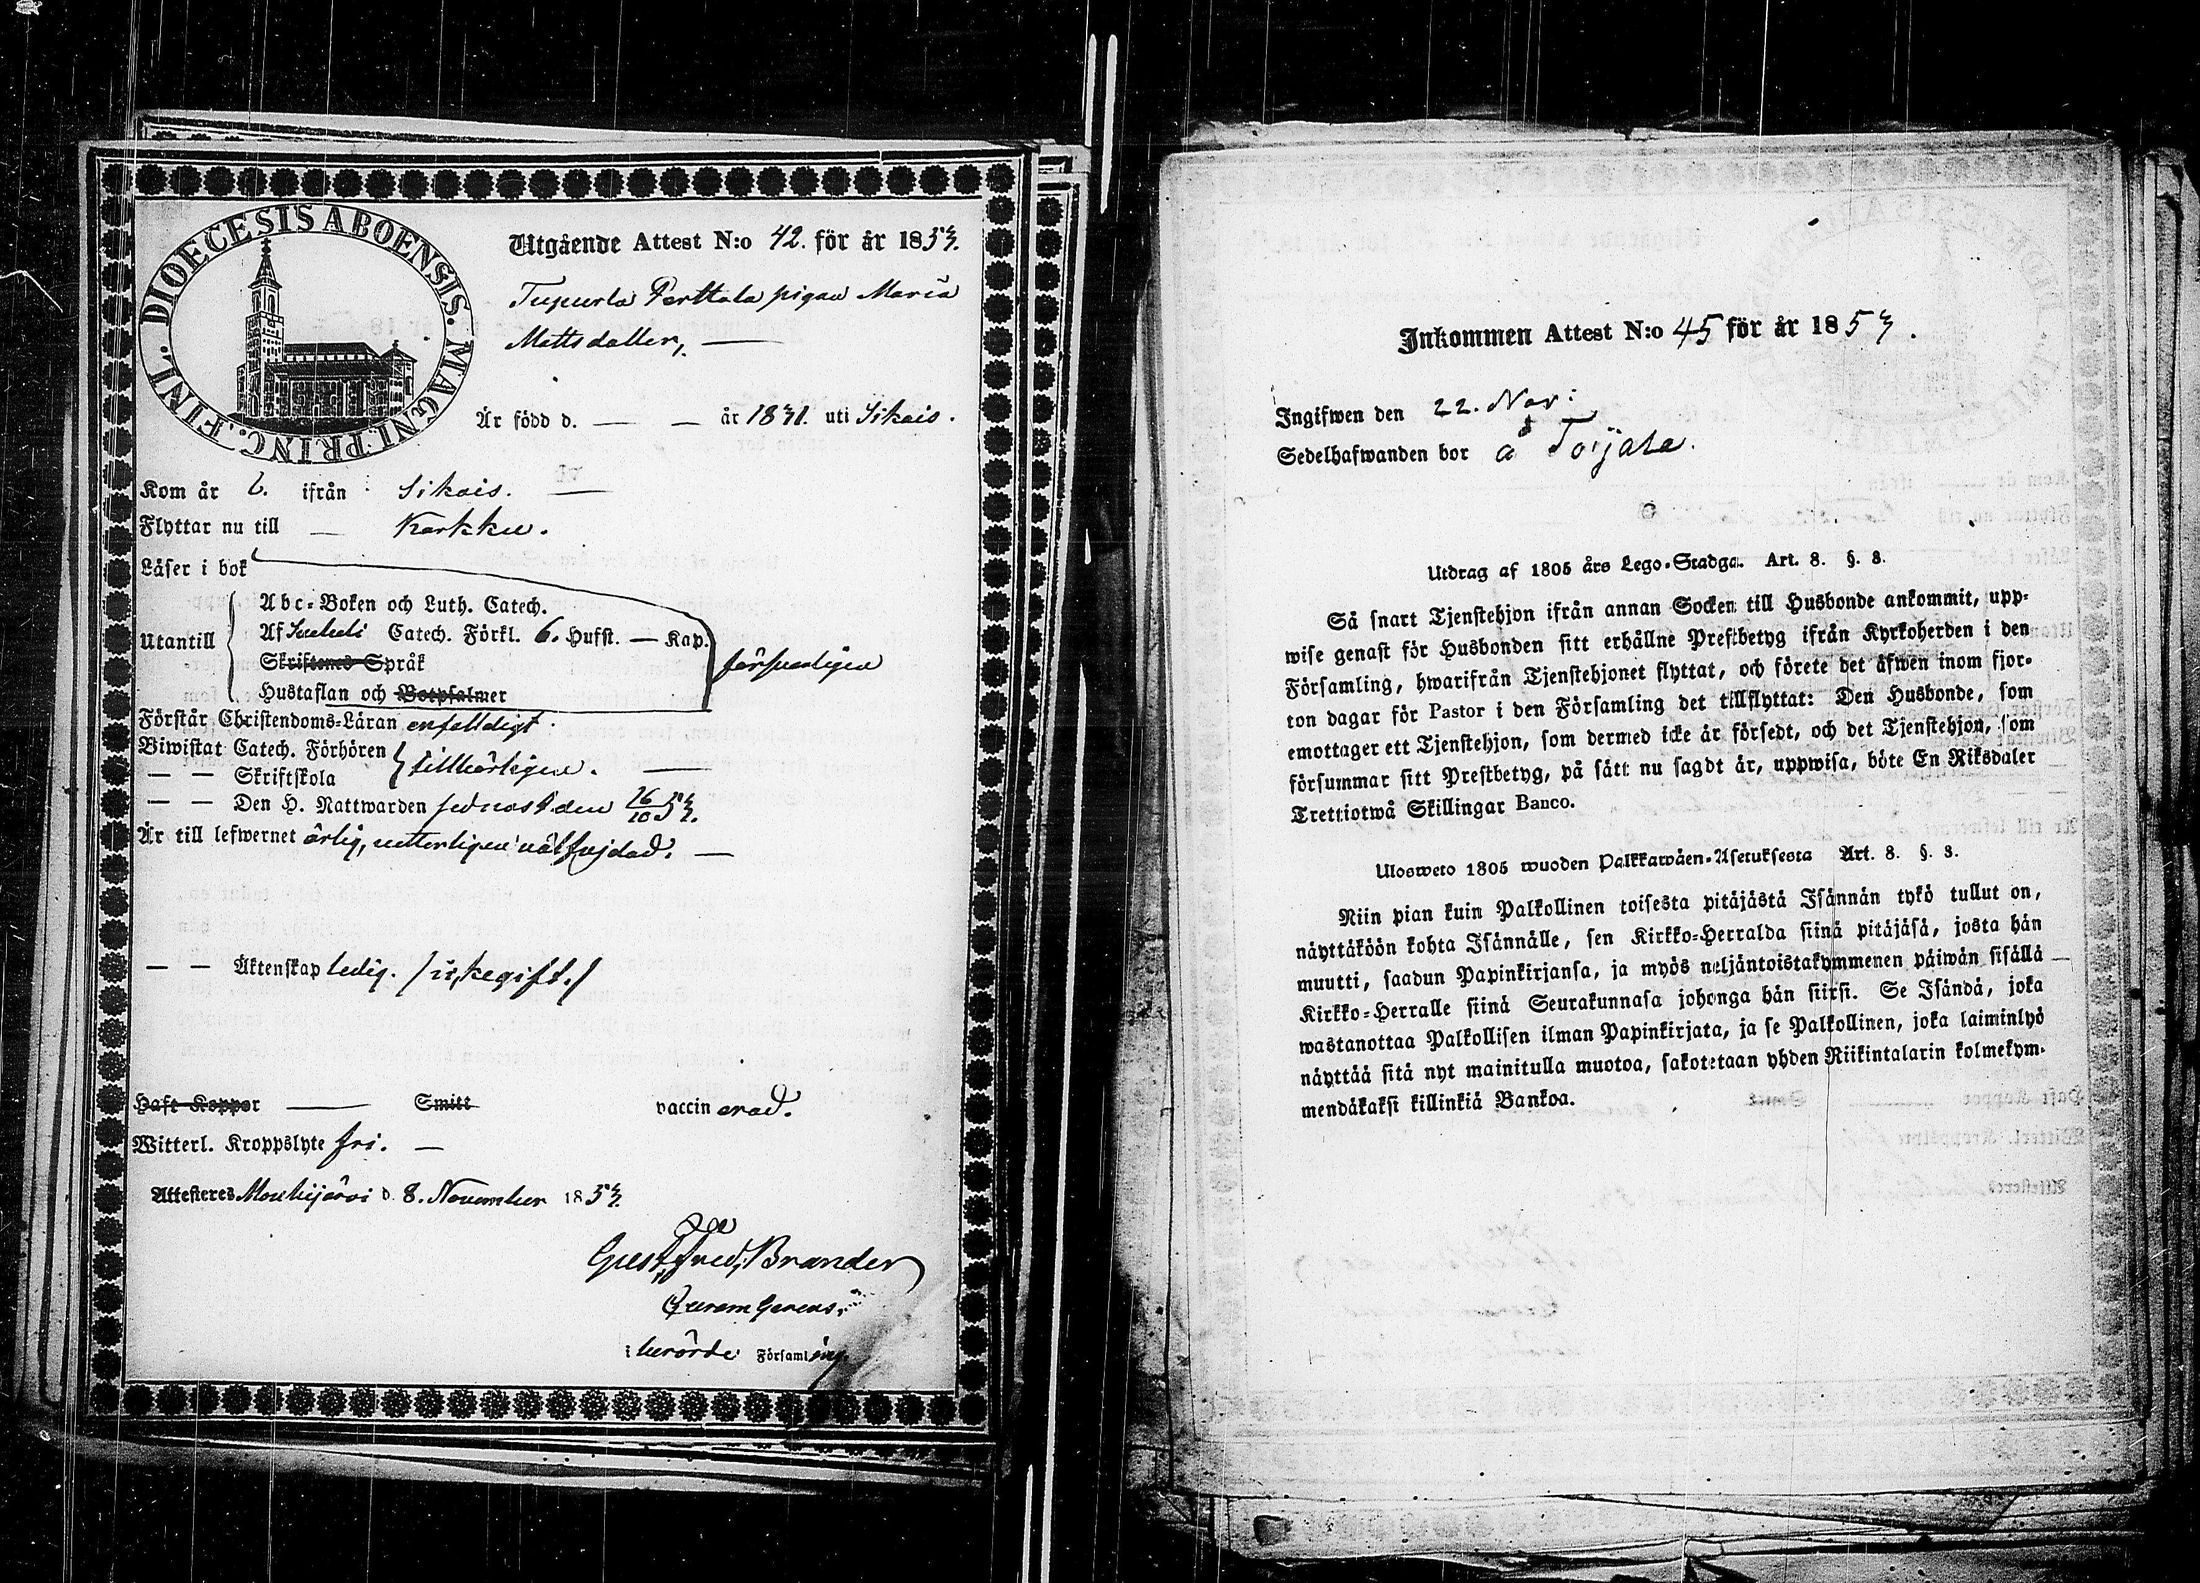 DIOECESIS ABOENSIS. MAGNI PRINC. FINL.
Utgående Attest N:o 42. för år 1853.
Tupurla Perttala pigan Maria
Mattsdotter,
Är född d. — — år 1831. uti Sikais.
Kom år l. ifrån Sikais. —
Flyttar nu till — Karkku.
Läser i bok
Utantill
Abc-Boken och Luth. Catech.
Af Svebeli Catech. Förkl. 6. Hufst. — Kap.
Skriftenes Språk
Hustaflan och Botpsalmer
försvarligen
Förstår Christendoms-Läran enfaldigt.
Biwistat Catech. Förhören
— — Skriftskola
tillbörligen. —
— — Den H. Nattwarden sednast den 16/10 53.
Är till lefwernet ärlig, vetterligen välfrejdad. —
— — Äktenskap ledig. /icke gift./
Haft Koppor — Smitt vaccinerad.
Witterl. Kroppslyte fri. —
Attesteres Mouhijärvi d. 8. November 1853.
Gust. Fred. Brander
i berörde Församling.
Inkommen Attest N:o 45 för år 1853.
Ingifwen den 22. Nov:
Sedelhafwanden bor å Toijala.
Utdrag af 1805 års Lego-Stadga. Art. 8. §. 8.
Så snart Tjenstehjon ifrån annan Socken till Husbonde ankommit, upp-
wise genast för Husbonden sitt erhållne Prestbetyg ifrån Kyrkoherden i den
Församling, hwarifrån Tjenstehjonet flyttat, och förete det äfwen inom fjor-
ton dagar för Pastor i den Församling det tillflyttat: Den Husbonde, som
emottager ett Tjenstehjon, som dermed icke är försedt, och det Tjenstehjon, som
försummar sitt Prestbetyg, på sätt nu sagdt är, uppwisa, böte En Riksdaler
Trettiotwå Skillingar Banco.
Ulosweto 1805 wuoden Palkkawäen-Asetuksesta Art. 8. §. 8.
Niin pian kuin Palkollinen toisesta pitäjästä Isännän tykö tullut on,
näyttäköön kohta Isännälle, sen Kirkko-Herralda siinä pitäjäsä, josta hän
muutti, saadun Papinkirjansa, ja myös neljäntoistakymmenen päiwän sisällä
Kirkko-Herralle siinä Seurakunnasa johonga hän siirsi. Se Isändä, joka
wastanottaa Palkollisen ilman Papinkirjata, ja se Palkollinen, joka laiminlyö
näyttää sitä nyt mainitulla muotoa, sakotetaan yhden Riikintalarin kolmekym-
mendäkaksi killinkiä Bankoa.